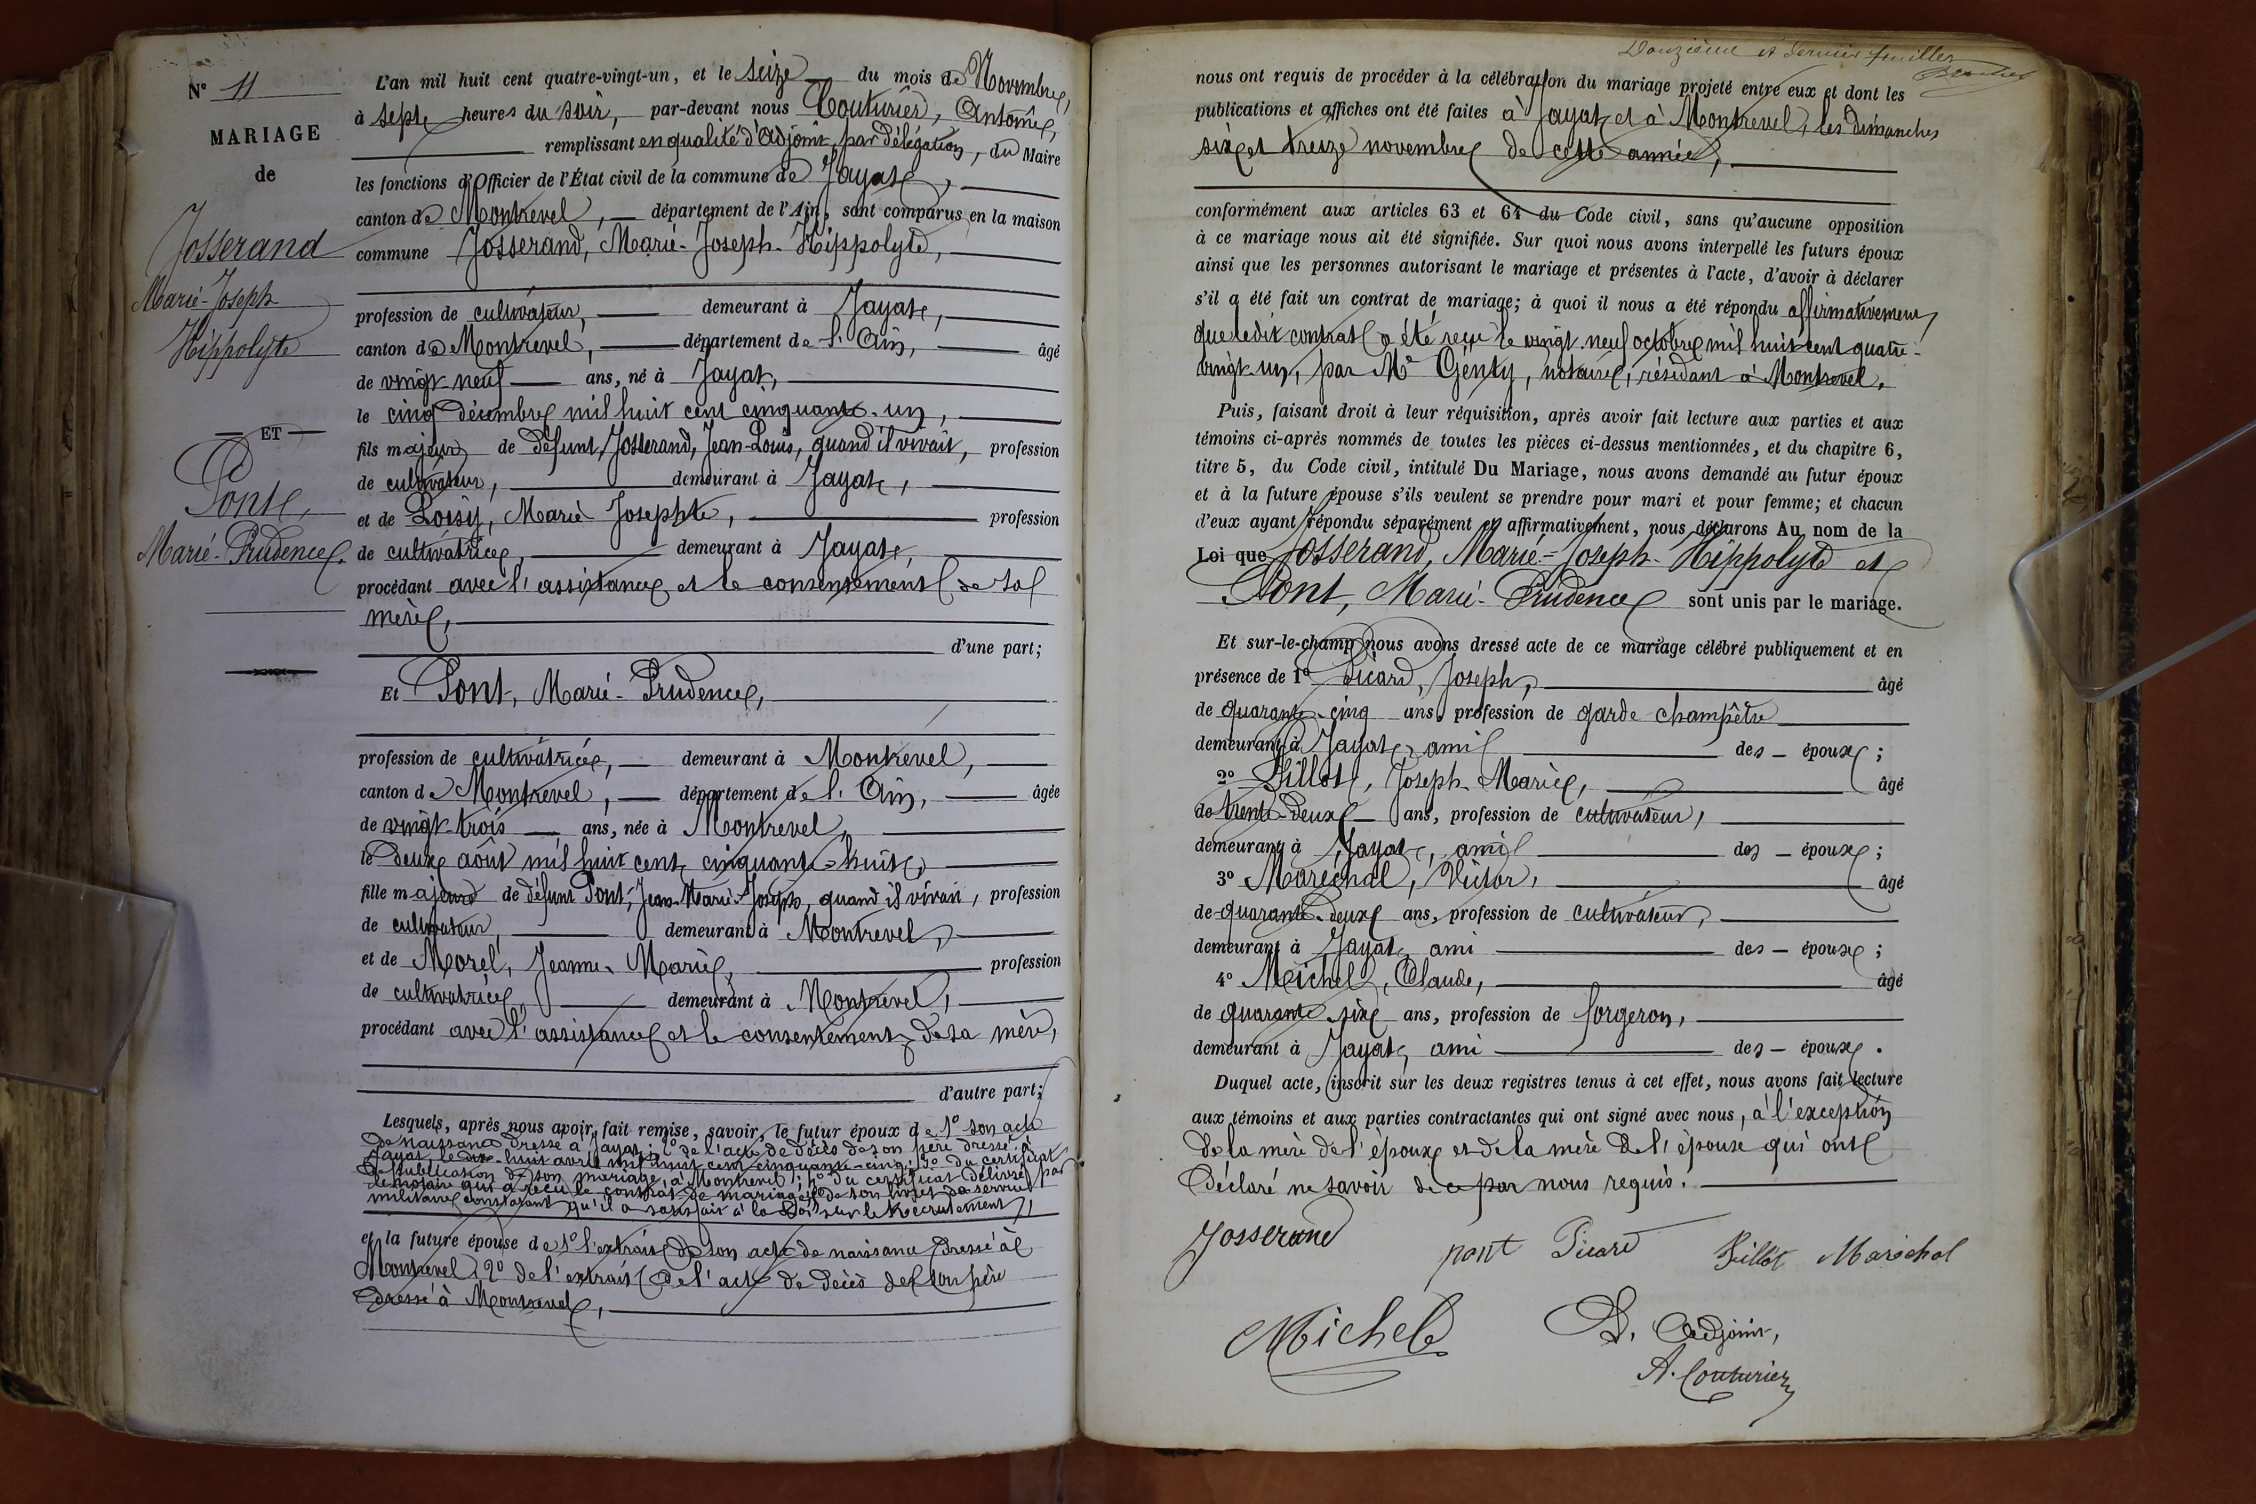 N° 11
MARIAGE
de
Josserand
Marie-Joseph
Hippolyte
ET
Pont,
Marie-Prudence.
L'an mil huit cent quatre-vingt-un, et le seize du mois de Novembre,
à sept heures du soir, par-devant nous Couturier, Antoine,
remplissant en qualité d'adjoint, par délégation, du Maire
les fonctions d'Officier de l'État civil de la commune de Jayat,
canton de Montrevel, département de l'Ain, sont comparus en la maison
commune Josserand, Marie-Joseph-Hippolyte,
profession de cultivateur, demeurant à Jayat,
canton de Montrevel, département de l'Ain, âgé
de vingt-neuf ans, né à Jayat,
le cinq décembre mil huit cent cinquante-un,
fils majeur de défunt Josserand, Jean-Louis, quand il vivait, profession
de cultivateur, demeurant à Jayat,
et de Loisy, Marie Josephte, profession
de cultivatrice, demeurant à Jayat,
procédant avec l'assistance et le consentement de sa
mère,
d'une part;
Et Pont, Marie-Prudence,
profession de cultivatrice, demeurant à Montrevel,
canton de Montrevel, département de l'Ain, âgée
de vingt-trois ans, née à Montrevel,
le deux août mil huit cent cinquante-huit,
fille majeure de défunt Pont, Jean-Marie-Joseph, quand il vivait, profession
de cultivateur, demeurant à Montrevel,
et de Morel, Jeanne-Marie, profession
de cultivatrice, demeurant à Montrevel,
procédant avec l'assistance et le consentement de sa mère,
d'autre part;
Lesquels, après nous avoir fait remise, savoir, le futur époux de 1° son acte
de naissance dressé à Jayat; 2° de l'acte de décès de son père dressé à
Jayat, le dix-huit avril mil huit cent cinquante-cinq; 3° du certificat
de publication de son mariage, à Montrevel; 4° du certificat délivré par
le notaire qui a reçu le contrat de mariage; 5° de son livret de service
militaire constatant qu'il a satisfait à la loi sur le Recrutement,
et la future épouse de 1° l'extrait de son acte de naissance dressé à
Montrevel, 2° de l'extrait de l'acte de décès de son père
dressé à Montrevel,
Douzième et dernier feuillet
nous ont requis de procéder à la célébration du mariage projeté entre eux et dont les
publications et affiches ont été faites à Jayat et à Montrevel, les dimanches
six et treize novembre de cette année,
conformément aux articles 63 et 64 du Code civil, sans qu'aucune opposition
à ce mariage nous ait été signifiée. Sur quoi nous avons interpellé les futurs époux
ainsi que les personnes autorisant le mariage et présentes à l'acte, d'avoir à déclarer
s'il a été fait un contrat de mariage; à quoi il nous a été répondu affirmativement
que ledit contrat a été reçu le vingt-neuf octobre mil huit cent quatre-
vingt-un, par Me Génty, notaire, résidant à Montrevel.
Puis, faisant droit à leur réquisition, après avoir fait lecture aux parties et aux
témoins ci-après nommés de toutes les pièces ci-dessus mentionnées, et du chapitre 6,
titre 5, du Code civil, intitulé Du Mariage, nous avons demandé au futur époux
et à la future épouse s'ils veulent se prendre pour mari et pour femme; et chacun
d'eux ayant répondu séparément et affirmativement, nous déclarons Au nom de la
Loi que Josserand, Marie-Joseph-Hippolyte et
Pont, Marie-Prudence sont unis par le mariage.
Et sur-le-champ nous avons dressé acte de ce mariage célébré publiquement et en
présence de 1° Picard, Joseph, âgé
de quarante-cinq ans, profession de garde champêtre
demeurant à Jayat, ami des époux;
2° Pillot, Joseph-Marie, âgé
de trente-deux ans, profession de cultivateur,
demeurant à Jayat, ami des époux;
3° Maréchal, Victor, âgé
de quarante-deux ans, profession de cultivateur,
demeurant à Jayat, ami des époux;
4° Meichel, Claude, âgé
de quarante-six ans, profession de forgeron,
demeurant à Jayat, ami des époux.
Duquel acte, inscrit sur les deux registres tenus à cet effet, nous avons fait lecture
aux témoins et aux parties contractantes qui ont signé avec nous, à l'exception
de la mère de l'époux et de la mère de l'épouse qui ont
déclaré ne savoir de ce par nous requis.
Josserand
pont Picard Pillot Maréchal
Michel
L'Adjoint,
A. Couturier